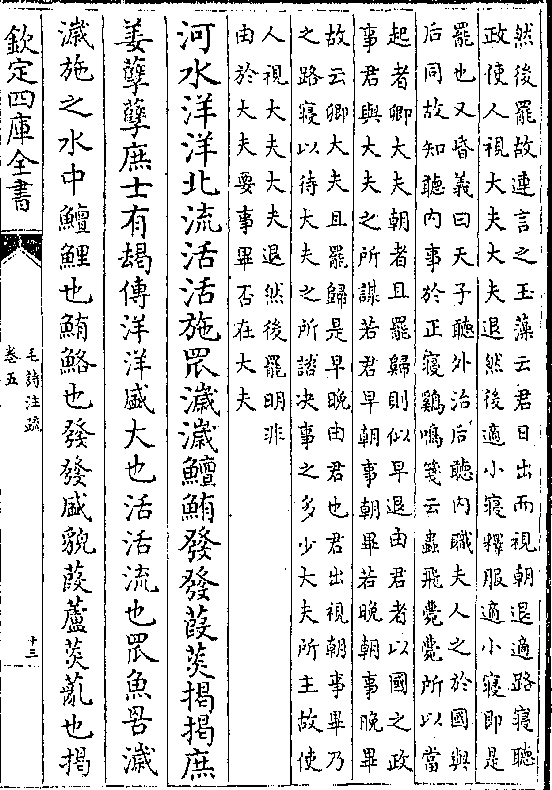 然後罷故連言之玉藻云君日出而視朝退適路寢聽
政使人視大夫大夫退然後適小寢釋服適小寢即是
罷也又昏義曰天子聽外治后聽内職夫人之於國與
后同故知聽内事於正寢鷄鳴箋云蟲飛薨薨所以當
起者卿大夫朝者且罷歸則似早退由君者以國之政
事君與大夫之所謀若君早朝事朝畢若晚朝事晚畢
故云卿大夫且罷歸是早晚由君也君出視朝事畢乃
之路寢以待大夫之所諮决事之多少大夫所主故使
人視大夫大夫退然後罷明非
由於大夫要事畢否在大夫
河水洋洋北流活活施罛濊濊鱣鮪發發葭菼揭揭庶
姜孽孽庶士有朅傳洋洋盛大也活活流也罛魚罟濊
濊施之水中鱣鯉也鮪鮥也發發盛貌葭蘆菼薍也揭
欽定四庫全書
毛詩注疏
卷五
十三